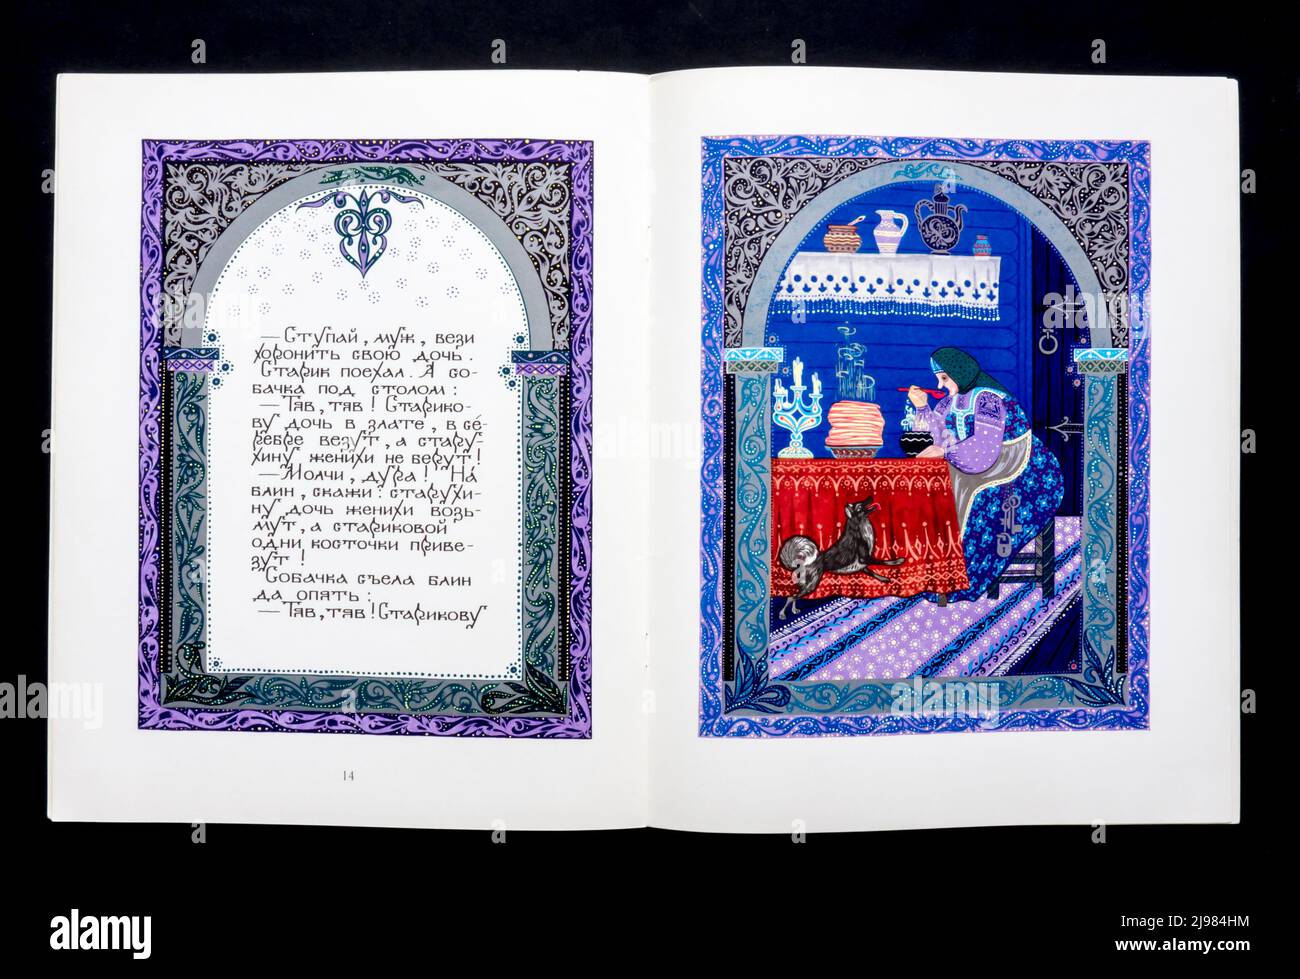 — Ступай, муж, вези
хоронить свою дочь.
Старик поехал. А со-
бачка под столом:
— Тяв, тяв! Старико-
ву дочь в злате, в се́-
ребре везут, а стару-
хину женихи не берут!
— Молчи, дура! На
блин, скажи: старухи-
ну дочь женихи возь-
мут, а стариковой
одни косточки приве-
зут!
Собачка съела блин
да опять:
— Тяв, тяв! Старикову
14
alamy
alamy
Image ID: 2J984HM
www.alamy.com